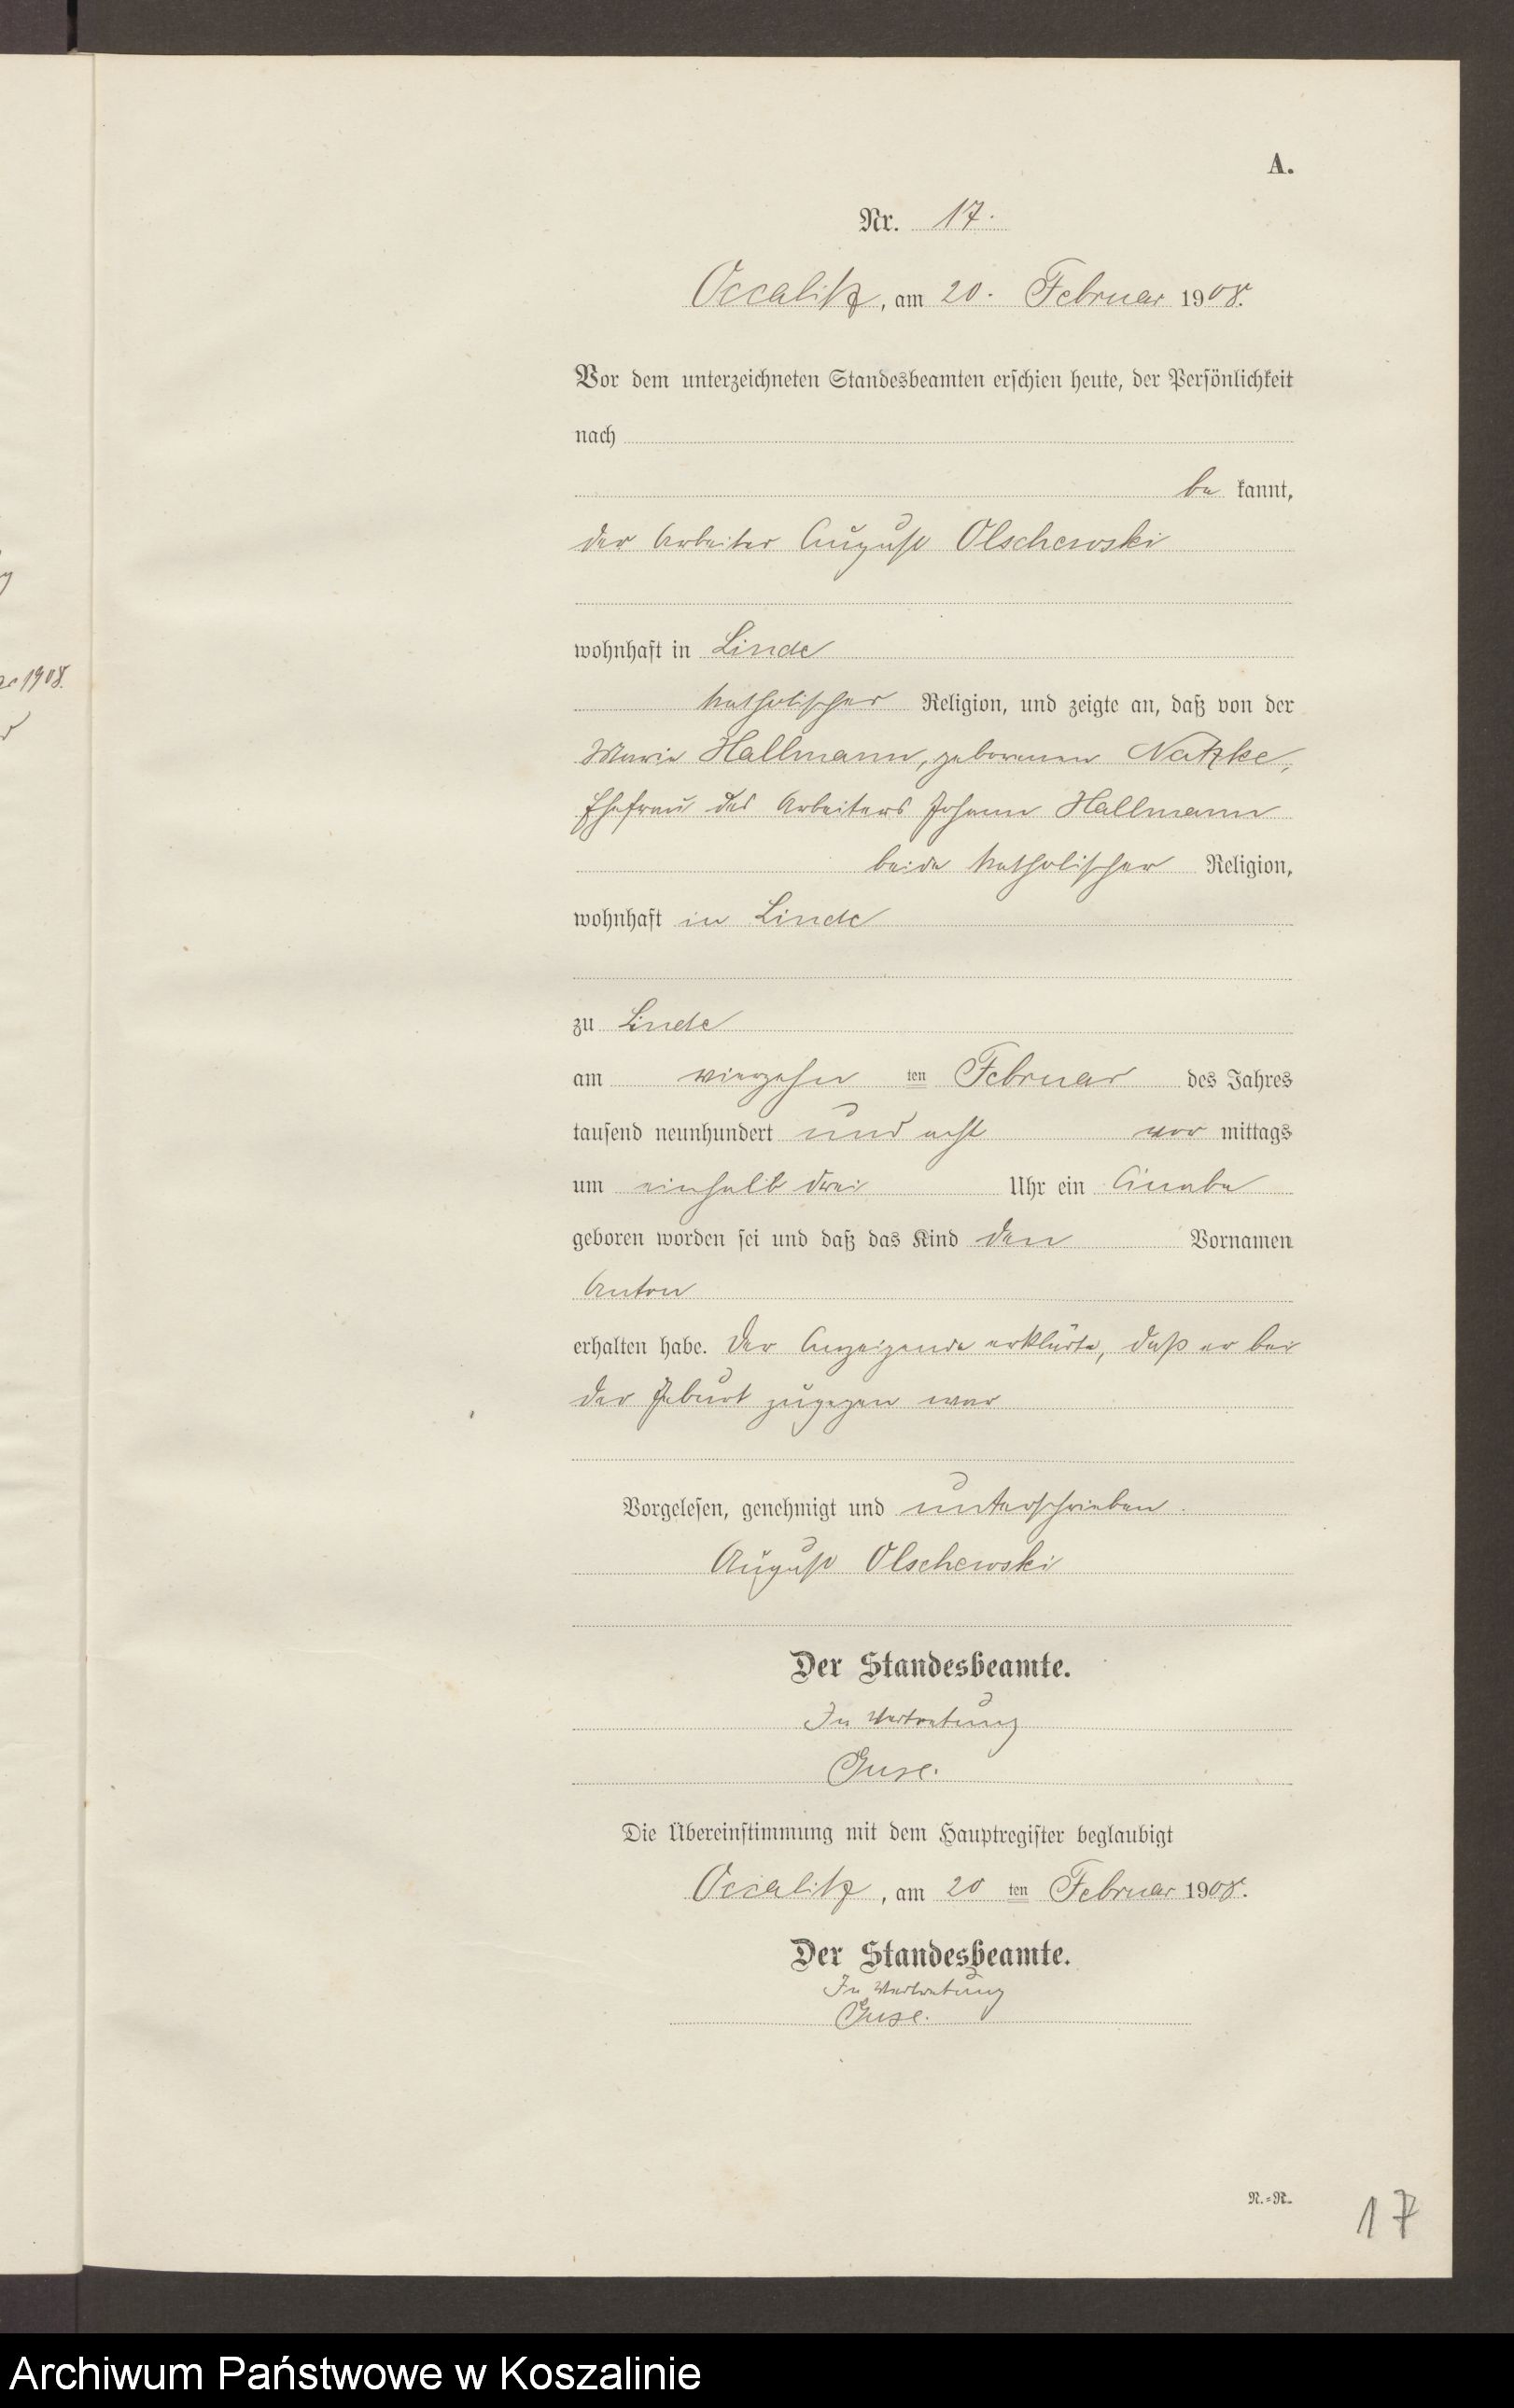 A.
Nr. 17.
Occalitz, am 20. Februar 1908.
Vor dem unterzeichneten Standesbeamten erschien heute, der Persönlichkeit
nach
be kannt,
der Arbeiter August Olschewski
wohnhaft in Linde
katholischer Religion, und zeigte an, daß von der
Marie Hallmann, geborenen Natzke,
Ehefrau des Arbeiters Johann Hallmann
beide katholischer Religion,
wohnhaft in Linde
zu Linde
am vierzehn ten Februar des Jahres
tausend neunhundert und acht vor mittags
um einhalb drei Uhr ein Knabe
geboren worden sei und daß das Kind den Vornamen
Anton
erhalten habe. Der Anzeigende erklärte, daß er bei
der Geburt zugegen war
Vorgelesen, genehmigt und unterschrieben.
August Olschewski
Der Standesbeamte.
In Vertretung
Guse.
Die Übereinstimmung mit dem Hauptregister beglaubigt
Occalitz, am 20 ten Februar 1908.
Der Standesbeamte.
In Vertretung
Guse.
N.=R.
17
1908.
Archiwum Państwowe w Koszalinie